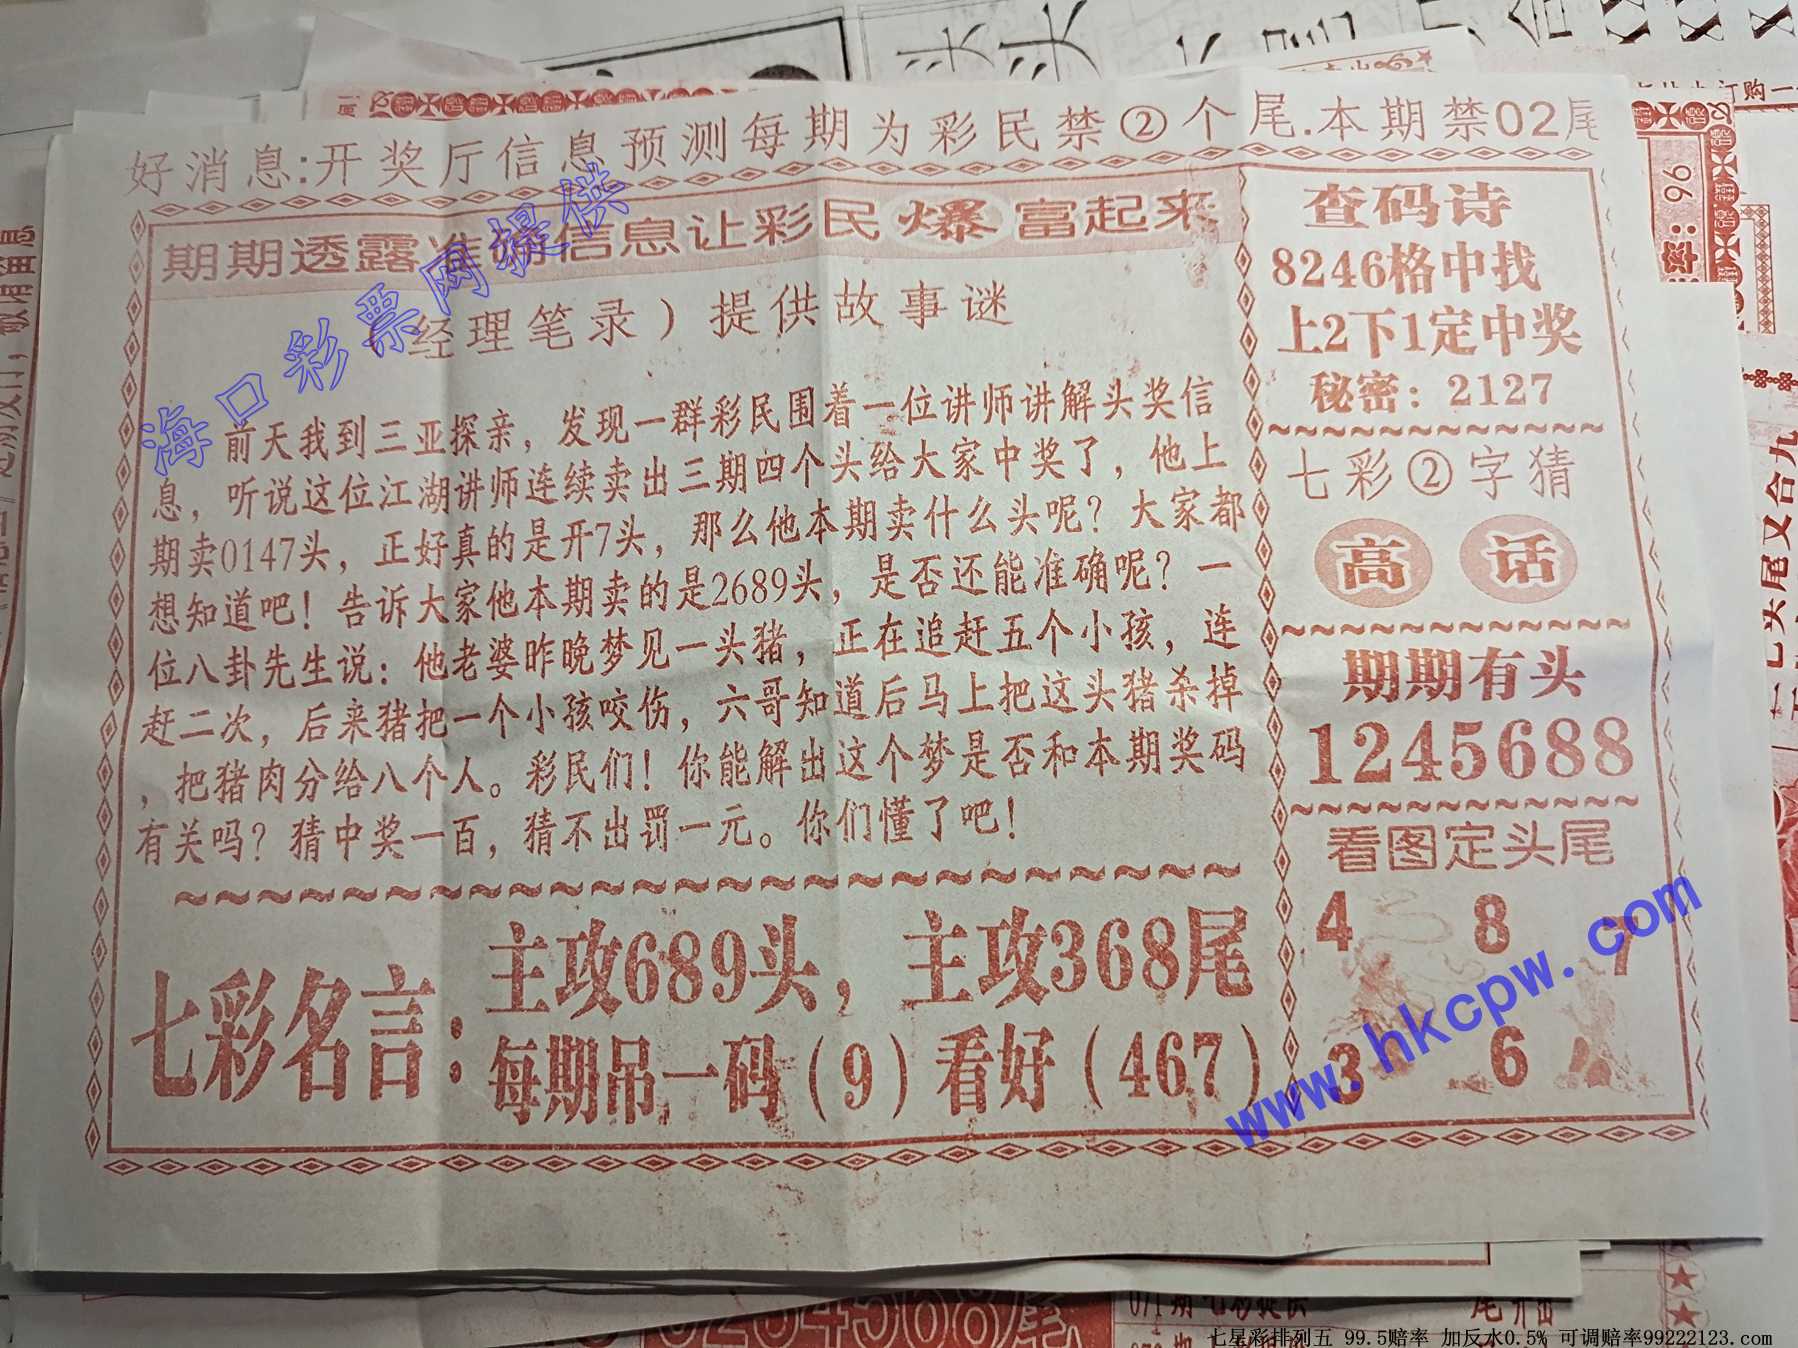 好消息:开奖厅信息预测每期为彩民禁②个尾.本期禁02尾
期期透露准确信息让彩民爆富起来
（经理笔录）提供故事谜
前天我到三亚探亲，发现一群彩民围着一位讲师讲解头奖信
息，听说这位江湖讲师连续卖出三期四个头给大家中奖了，他上
期卖0147头，正好真的是开7头，那么他本期卖什么头呢？大家都
想知道吧！告诉大家他本期卖的是2689头，是否还能准确呢？一
位八卦先生说：他老婆昨晚梦见一头猪，正在追赶五个小孩，连
赶二次，后来猪把一个小孩咬伤，六哥知道后马上把这头猪杀掉
，把猪肉分给八个人。彩民们！你能解出这个梦是否和本期奖码
有关吗？猜中奖一百，猜不出罚一元。你们懂了吧！
七彩名言：
主攻689头，主攻368尾
每期吊一码（9）看好（467）
查码诗
8246格中找
上2下1定中奖
秘密：2127
七彩②字猜
高 话
期期有头
1245688
看图定头尾
4 8 7
3 6
海口彩票网提供
www.hkcpw.com
率：96
订购一
七头尾又合九
071期七彩提供
尾 开出
0234568尾
七星彩排列五 99.5赔率 加反水0.5% 可调赔率99222123.com